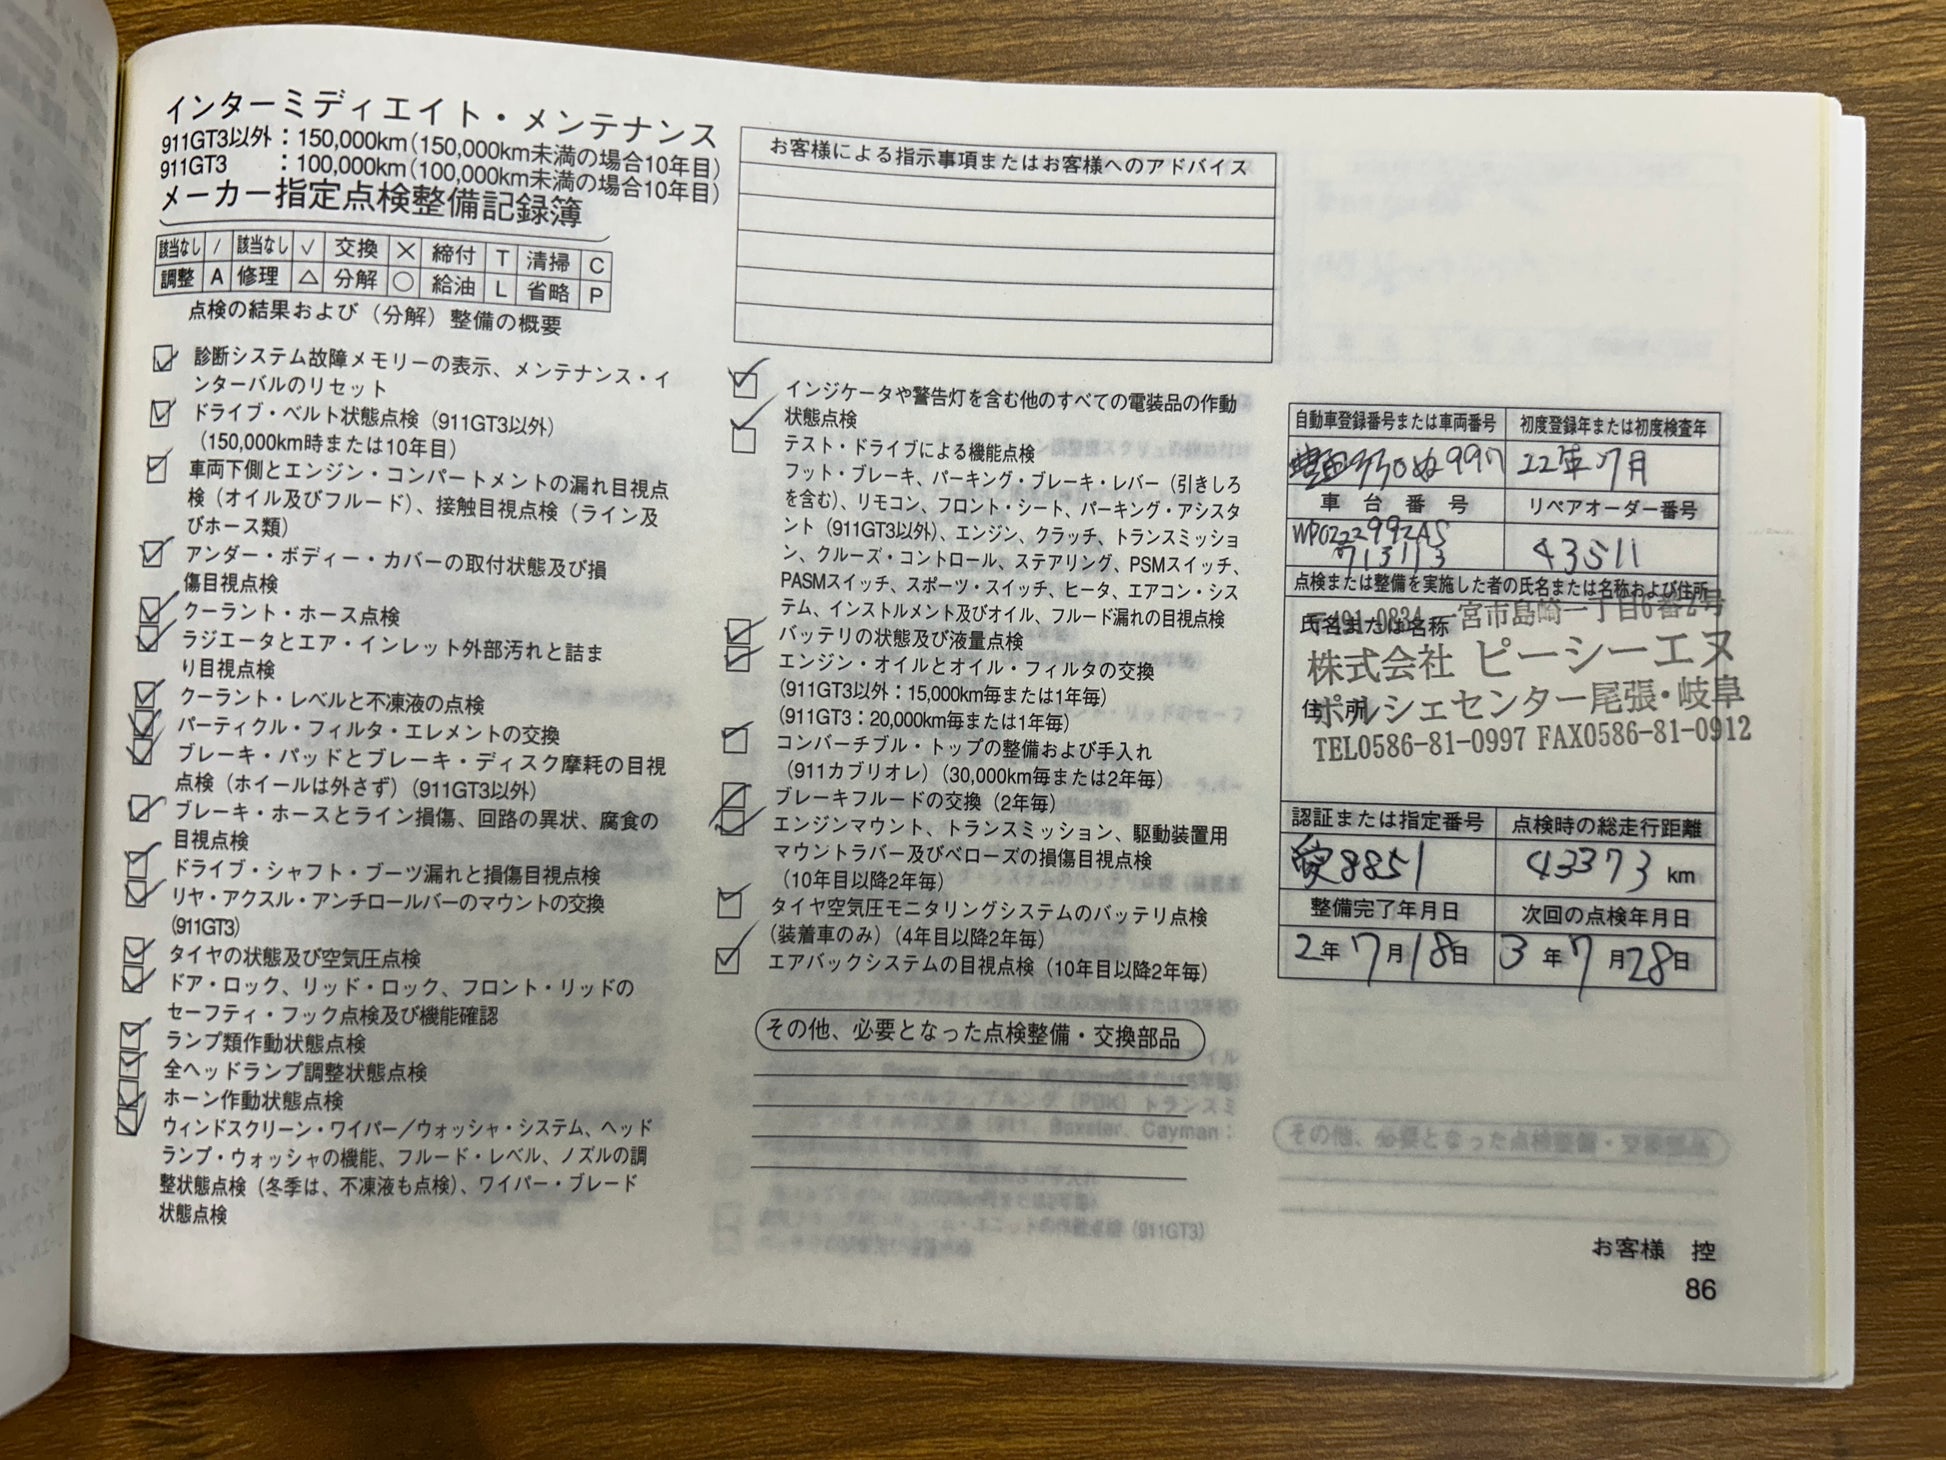 インターミディエイト・メンテナンス
911GT3以外：150,000km（150,000km未満の場合10年目）
911GT3　　：100,000km（100,000km未満の場合10年目）
メーカー指定点検整備記録簿
該当なし / 該当なし √ 交換 × 締付 T 清掃 C
調整 A 修理 △ 分解 ○ 給油 L 省略 P
点検の結果および（分解）整備の概要
診断システム故障メモリーの表示、メンテナンス・イ
ンターバルのリセット
ドライブ・ベルト状態点検（911GT3以外）
（150,000km時または10年目）
車両下側とエンジン・コンパートメントの漏れ目視点
検（オイル及びフルード）、接触目視点検（ライン及
びホース類）
アンダー・ボディー・カバーの取付状態及び損
傷目視点検
クーラント・ホース点検
ラジエータとエア・インレット外部汚れと詰ま
り目視点検
クーラント・レベルと不凍液の点検
パーティクル・フィルタ・エレメントの交換
ブレーキ・パッドとブレーキ・ディスク摩耗の目視
点検（ホイールは外さず）（911GT3以外）
ブレーキ・ホースとライン損傷、回路の異状、腐食の
目視点検
ドライブ・シャフト・ブーツ漏れと損傷目視点検
リヤ・アクスル・アンチロールバーのマウントの交換
(911GT3)
タイヤの状態及び空気圧点検
ドア・ロック、リッド・ロック、フロント・リッドの
セーフティ・フック点検及び機能確認
ランプ類作動状態点検
全ヘッドランプ調整状態点検
ホーン作動状態点検
ウィンドスクリーン・ワイパー／ウォッシャ・システム、ヘッド
ランプ・ウォッシャの機能、フルード・レベル、ノズルの調
整状態点検（冬季は、不凍液も点検）、ワイパー・ブレード
状態点検
お客様による指示事項またはお客様へのアドバイス
インジケータや警告灯を含む他のすべての電装品の作動
状態点検
テスト・ドライブによる機能点検
フット・ブレーキ、パーキング・ブレーキ・レバー（引きしろ
を含む）、リモコン、フロント・シート、パーキング・アシスタ
ント（911GT3以外）、エンジン、クラッチ、トランスミッショ
ン、クルーズ・コントロール、ステアリング、PSMスイッチ、
PASMスイッチ、スポーツ・スイッチ、ヒータ、エアコン・シス
テム、インストルメント及びオイル、フルード漏れの目視点検
バッテリの状態及び液量点検
エンジン・オイルとオイル・フィルタの交換
(911GT3以外：15,000km毎または1年毎)
(911GT3：20,000km毎または1年毎)
コンバーチブル・トップの整備および手入れ
（911カブリオレ）（30,000km毎または2年毎）
ブレーキフルードの交換（2年毎）
エンジンマウント、トランスミッション、駆動装置用
マウントラバー及びベローズの損傷目視点検
（10年目以降2年毎）
タイヤ空気圧モニタリングシステムのバッテリ点検
（装着車のみ）（4年目以降2年毎）
エアバックシステムの目視点検（10年目以降2年毎）
その他、必要となった点検整備・交換部品
自動車登録番号または車両番号 初度登録年または初度検査年
330ぬ997 22年7月
車台番号 リペアオーダー番号
WP0ZZZ99ZAS
713113 43511
点検または整備を実施した者の氏名または名称および住所
氏名または名称
〒491-0834 一宮市島崎一丁目6番2号
株式会社 ピーシーエヌ
住所
ポルシェセンター尾張・岐阜
TEL0586-81-0997 FAX0586-81-0912
認証または指定番号 点検時の総走行距離
愛8851 43373 km
整備完了年月日 次回の点検年月日
2年7月18日 3年7月28日
お客様 控
86